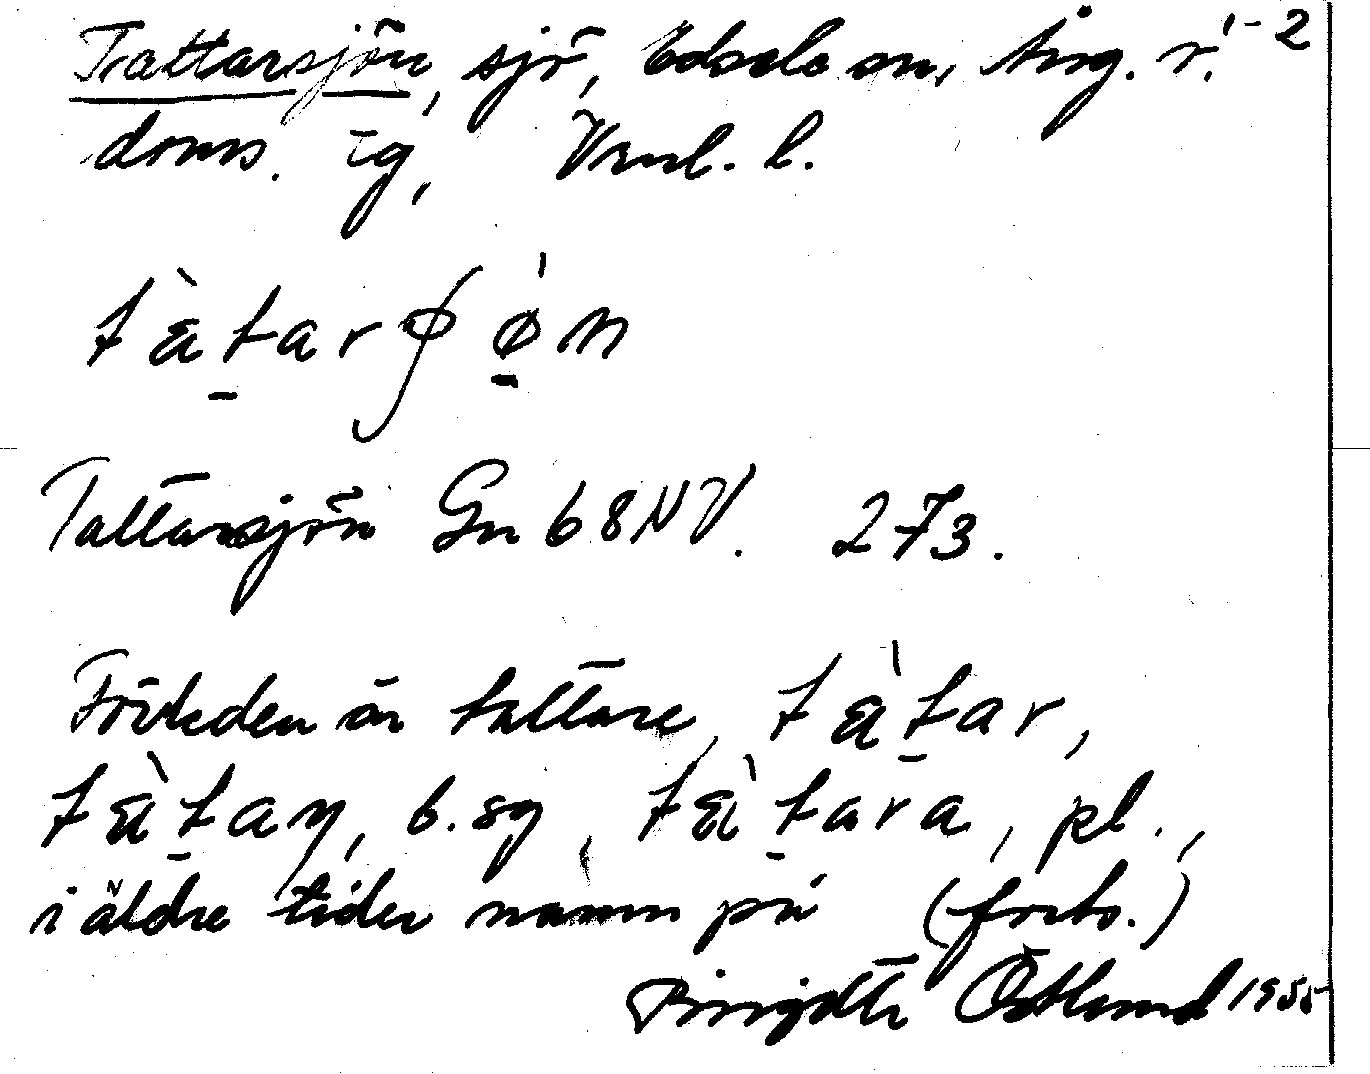 Tattarsjön, sjö, Edsele sn, Ång. v. 1-2
doms. ɩ̄g, Vrnl. l.
tàtarʃøn
Tattarsjön Gn 68 NV. 273.
Förleden är tattare, tàtar,
tàtaɳ, b. sg, tàtara, pl.,
i äldre tider namn på (forts.)
Birgitta Östlund 1955